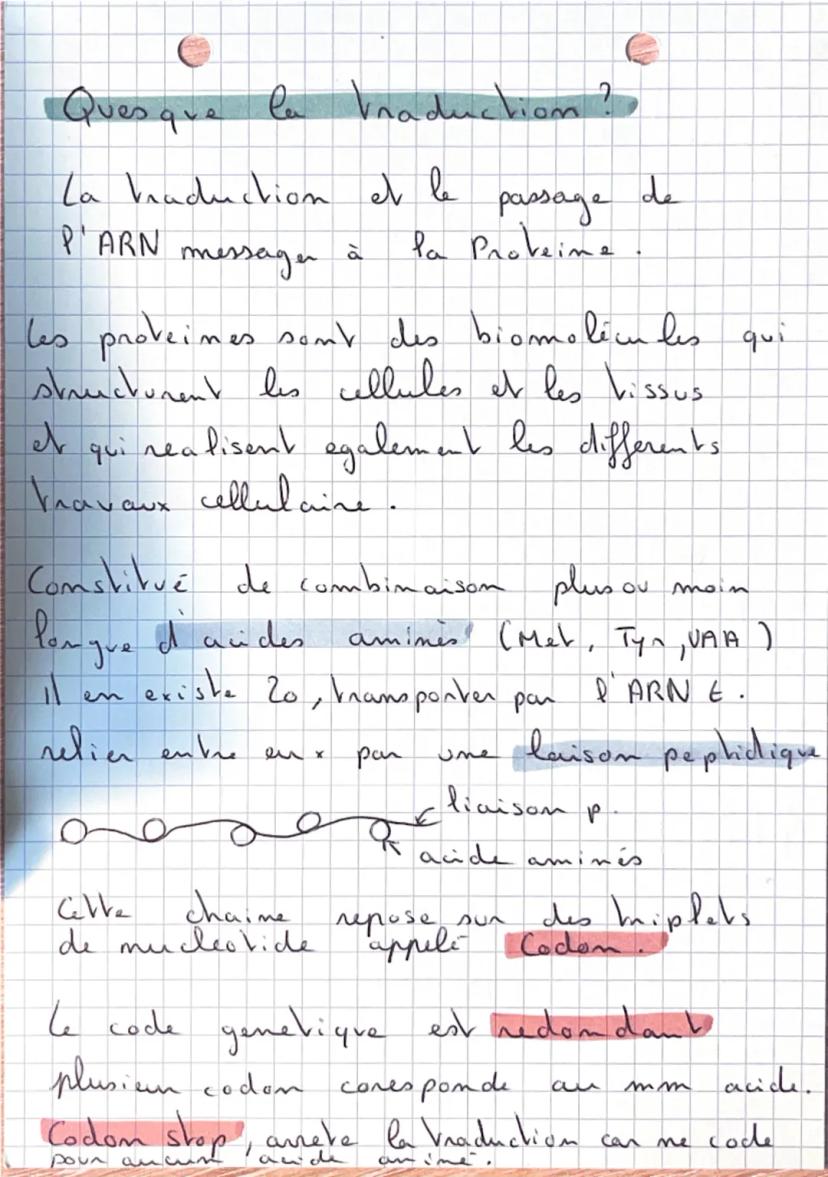 Ques que la traduction ?
La traduction et le passage de
l'ARN messager à la Proteine .
Les proteines sont des biomolécules qui
structurent les cellules et les tissus
et qui realisent egalement les differents
travaux cellulaire .
Constitué de combinaison plus ou moin
longue d'acides aminés (Met, Tyr, UAA )
il en existe 20, transporter par l'ARN t .
relier entre eux par une laison peptidique
liaison p.
acide aminés
Cette chaine repose sur des triplets
de nucleotide appelé Codon .
Le code genetique est redondant
plusieur codon coresponde au mm acide.
Codon stop, arrete la traduction car ne code
pour aucun acide aminé .